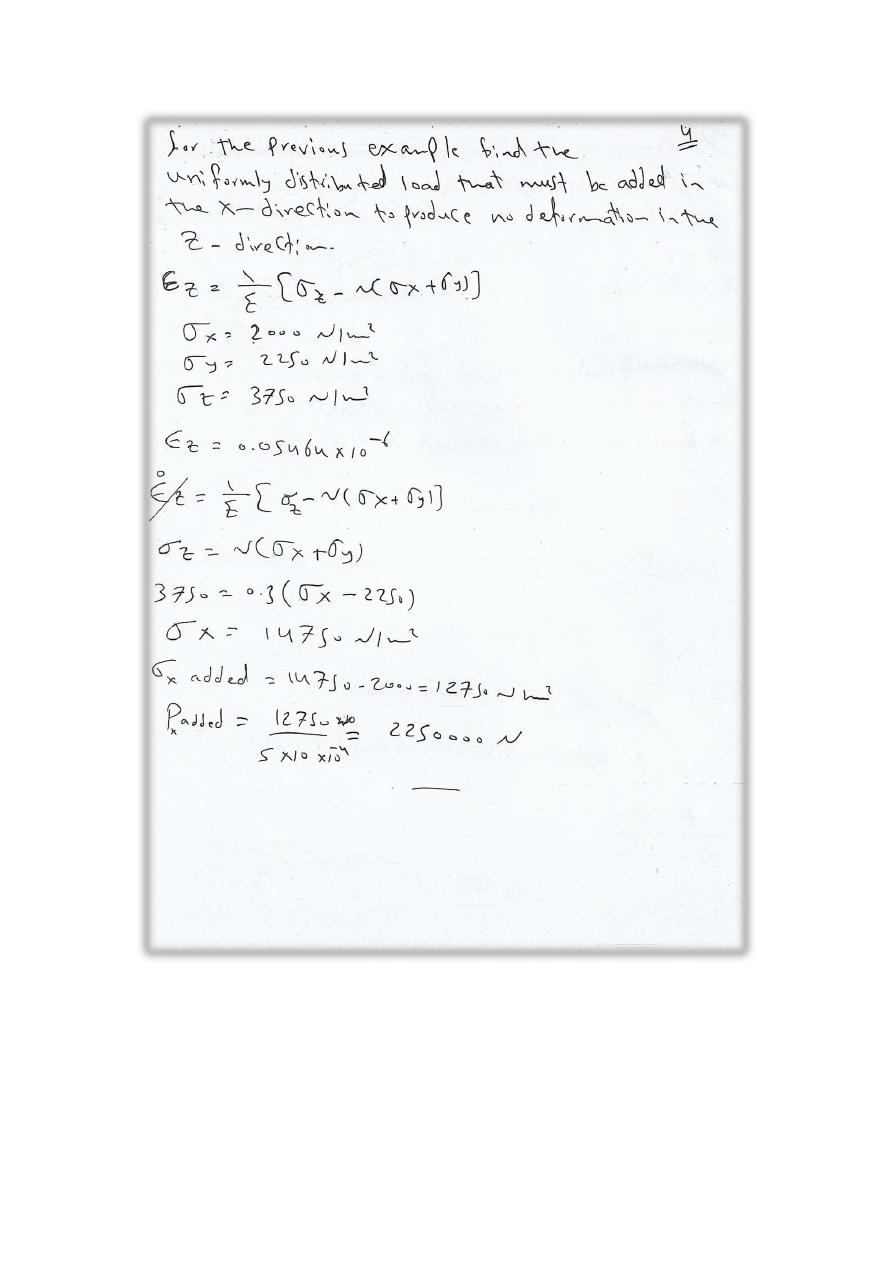 4
for the previous example find the
uniformly distributed load that must be added in
the x-direction to produce no deformation in the
z-direction.
ϵz = 1/E [σz - ν(σx + σy)]
σx = 2000 N/m²
σy = 2250 N/m²
σz = 3750 N/m²
ϵz = 0.05464 x 10⁻⁶
ϵz⁰ = 1/E [σz - ν(σx + σy)]
σz = ν(σx + σy)
3750 = 0.3(σx - 2250)
σx = 14750 N/m²
σx added = 14750 - 2000 = 12750 N/m²
Px added = 12750 / 5x10 x10⁻⁴ = 2250000 N